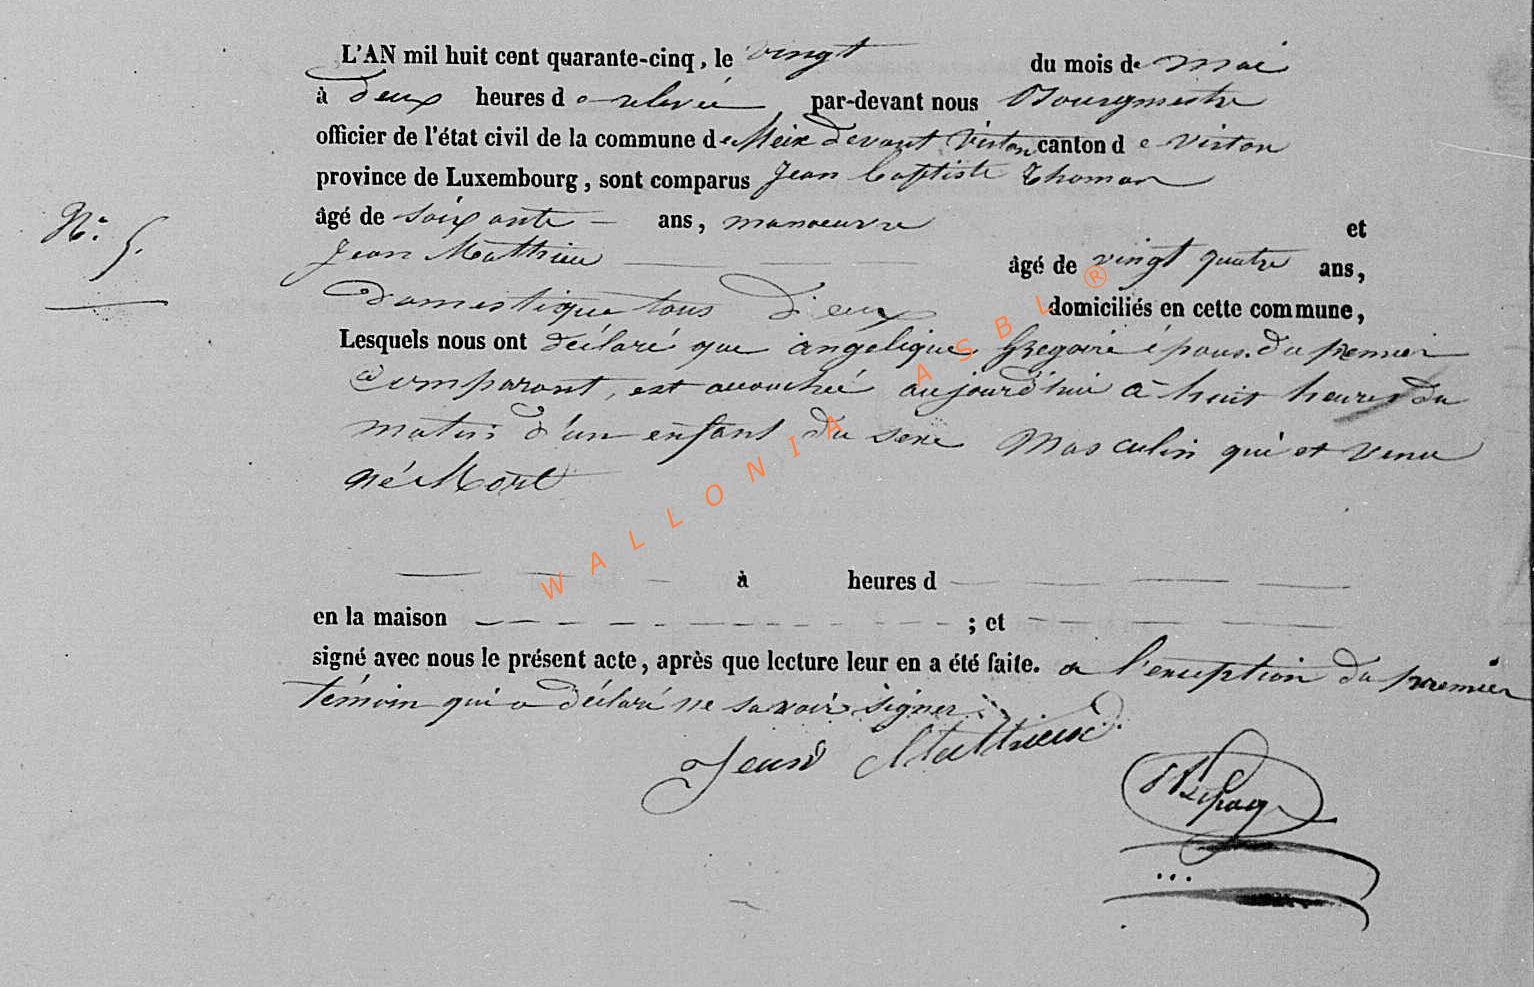 L'AN mil huit cent quarante-cinq, le vingt du mois de mai
à deux heures de relevée par-devant nous Bourgmestre
officier de l'état civil de la commune de Meix devant Virton canton de Virton
province de Luxembourg, sont comparus Jean Baptiste Thomas
âgé de soixante ans, manoeuvre et
N° 5.
Jean Mathieu âgé de vingt quatre ans,
domestique tous deux domiciliés en cette commune,
Lesquels nous ont déclaré que angelique Gregoire épous. du premier
comparant, est accouchée aujourd'hui à huit heures du
matin d'un enfant du sexe Masculin qui et venu
né Mort
à heures d
en la maison ; et
signé avec nous le présent acte, après que lecture leur en a été faite. a l'exception du premier
témoin qui a déclaré ne savoir signer
Jean Matthieu
WALLONIA ASBL ®